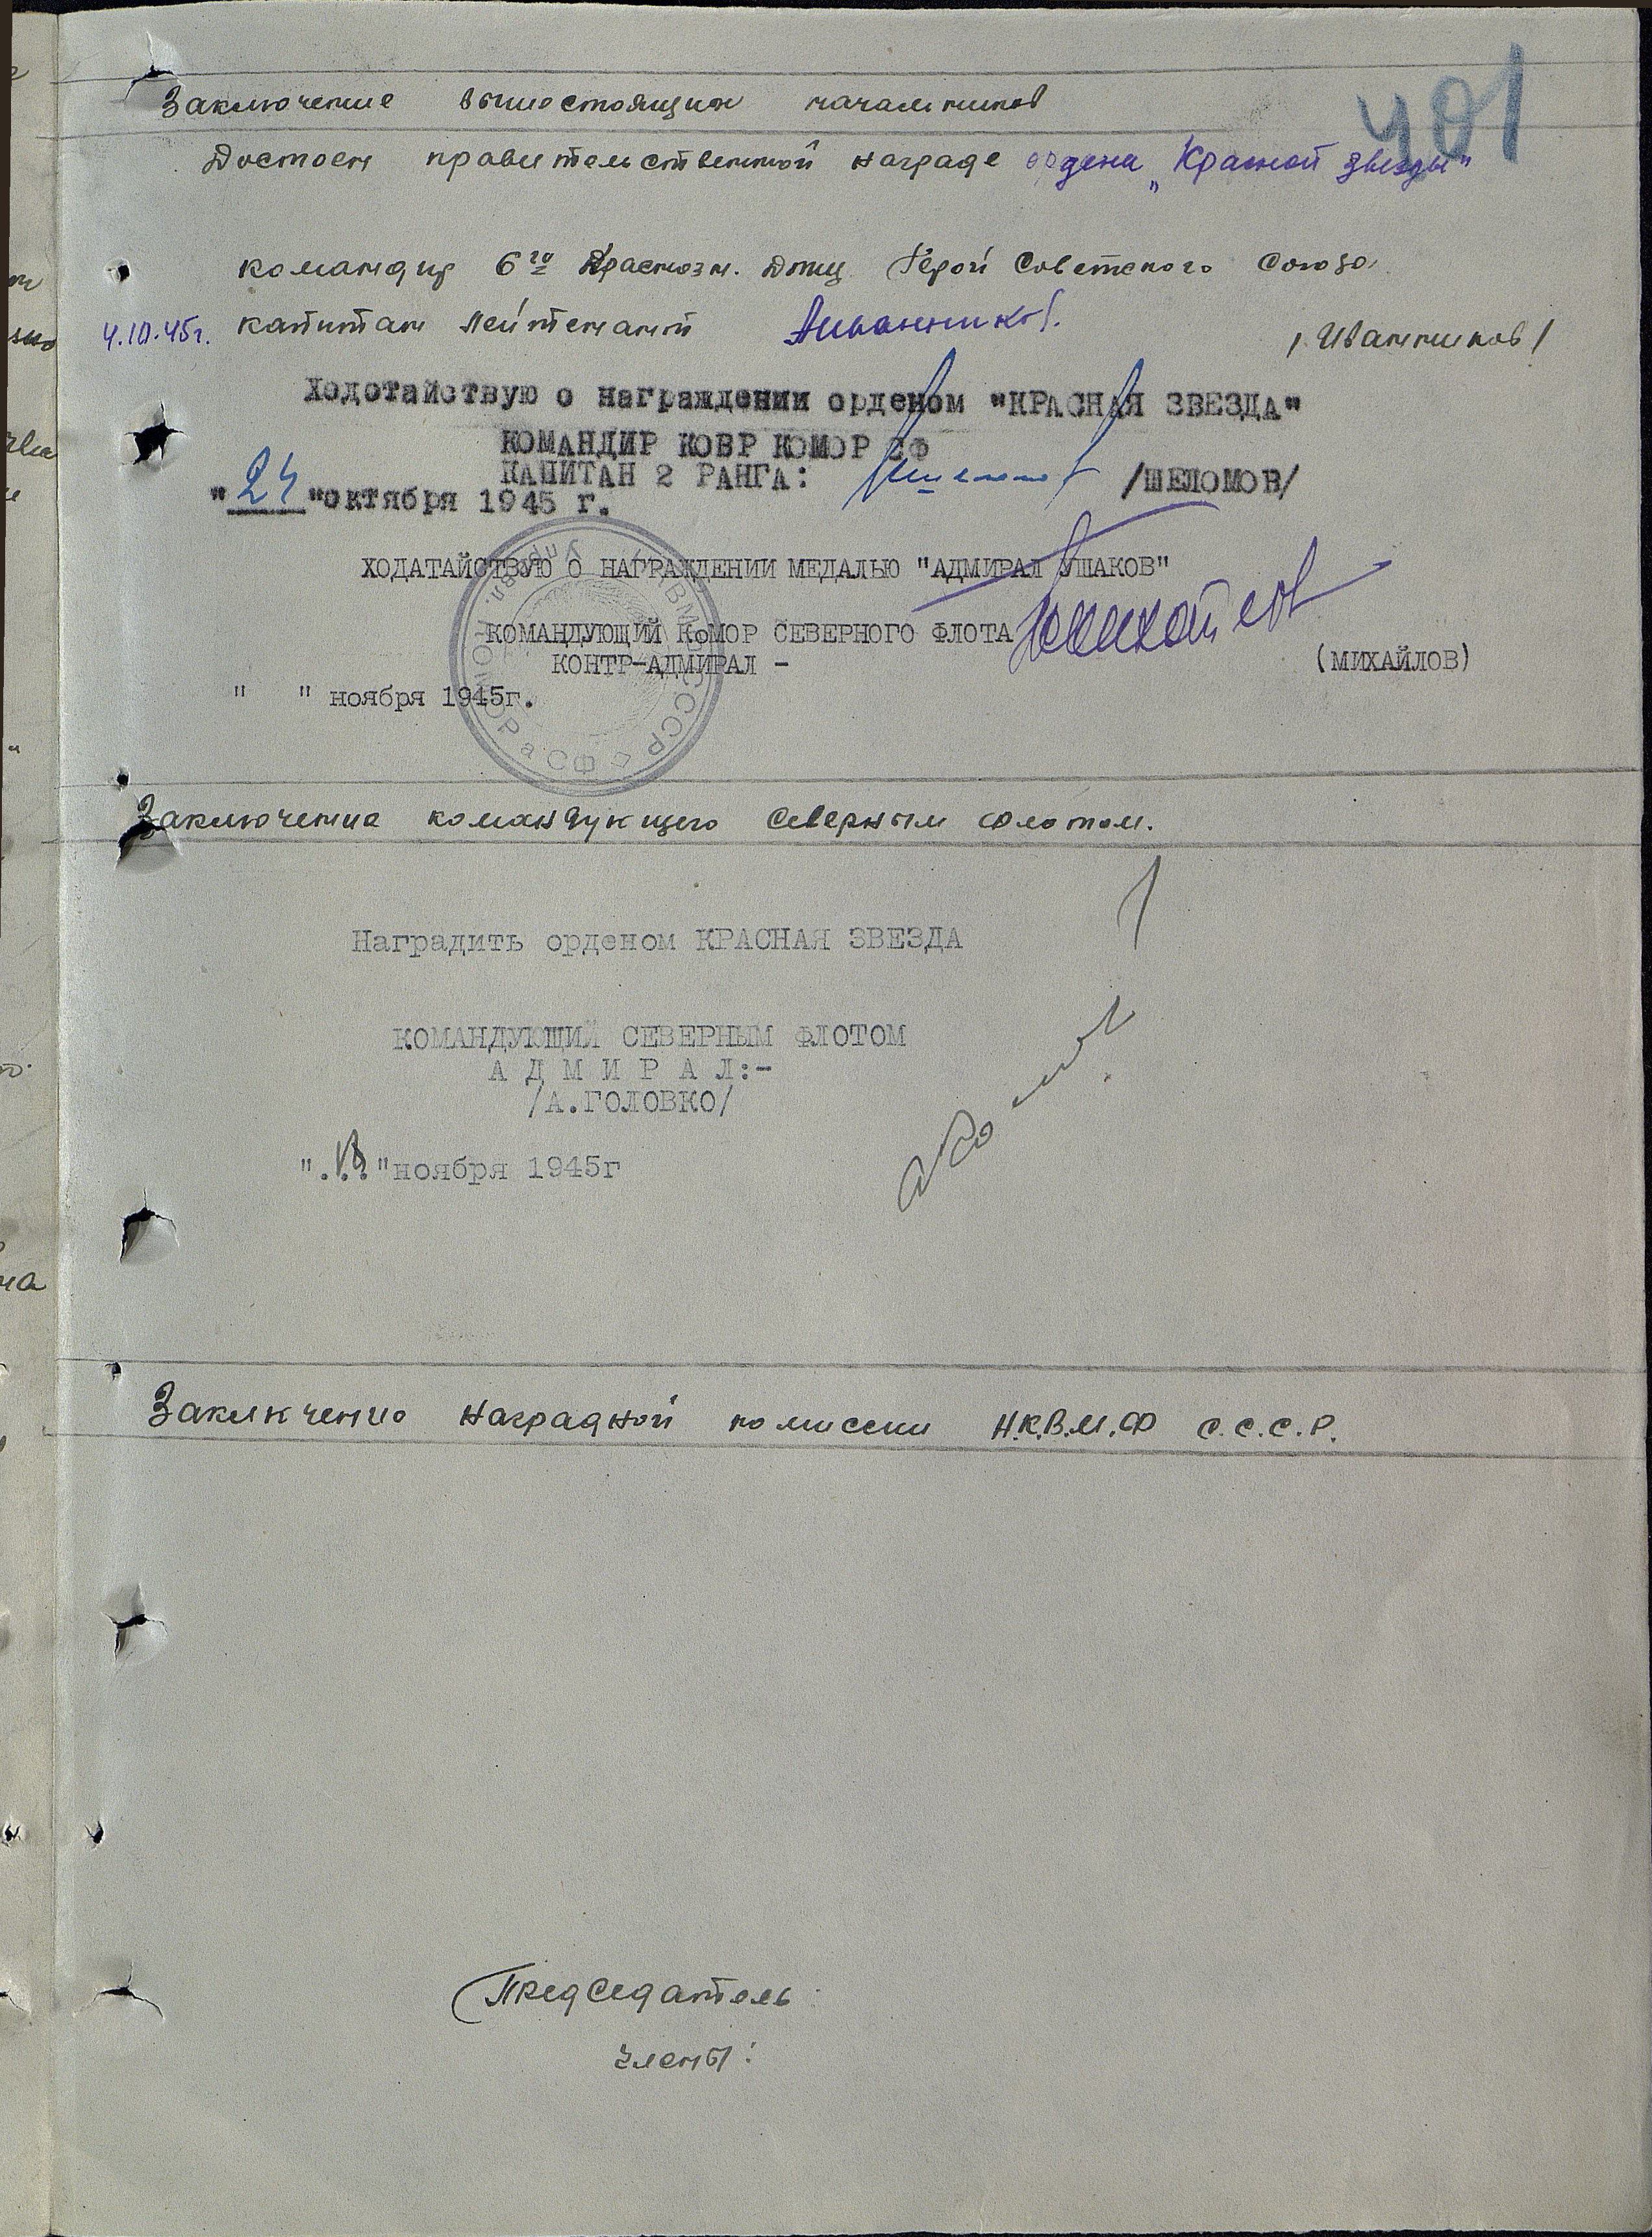 401
Заключение вышестоящих начальников
Достоен правительственной награде ордена „Красной звезды"
командир 6го Краснозн. Дтщ Герой Советского Союза
4.10.45г. капитан лейтенант Иванников. / Иванников /
Ходотайствую о награждении орденом "КРАСНАЯ ЗВЕЗДА"
КОМАНДИР КОВР КОМОР СФ
КАПИТАН 2 РАНГА: /ШЕЛОМОВ/
"24"октября 1945 г.
ХОДАТАЙСТВУЮ О НАГРАЖДЕНИИ МЕДАЛЬЮ "АДМИРАЛ УШАКОВ"
КОМАНДУЮЩИЙ КОМОР СЕВЕРНОГО ФЛОТА
КОНТР-АДМИРАЛ - (МИХАЙЛОВ)
" " ноября 1945г.
Заключение командующего Северным флотом.
Наградить орденом КРАСНАЯ ЗВЕЗДА
КОМАНДУЮЩИЙ СЕВЕРНЫМ ФЛОТОМ
А Д М И Р А Л:-
/А.ГОЛОВКО/
"18"ноября 1945г
Заключению наградной комиссии Н.К.В.М.Ф С.С.С.Р.
Председатель
члены: